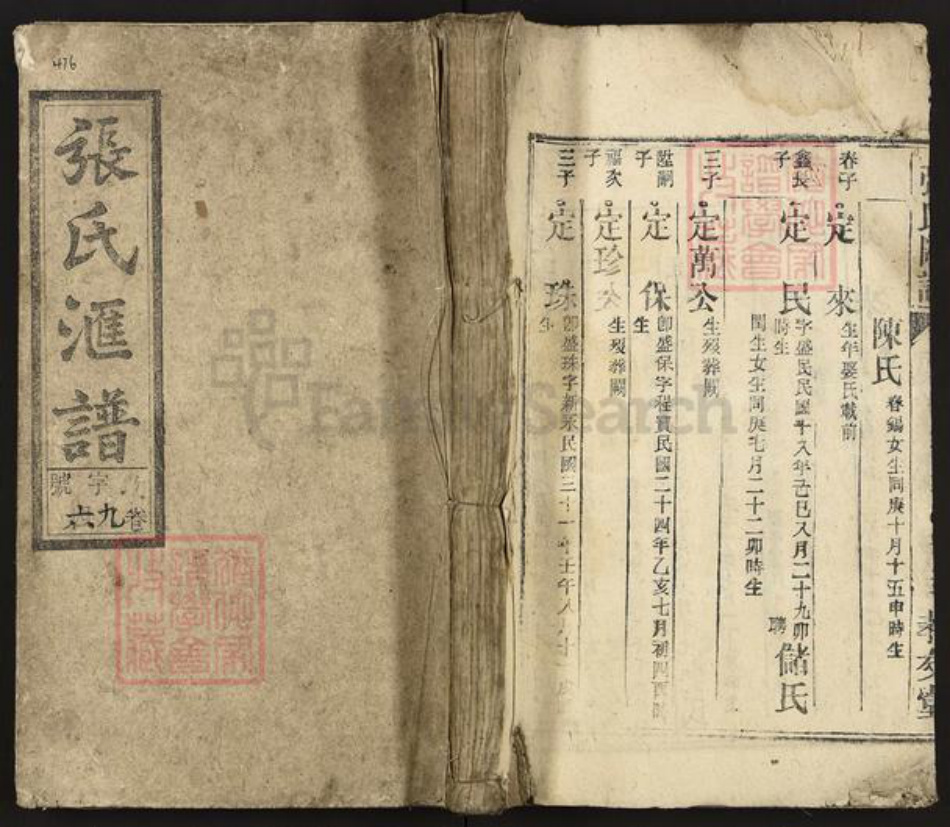 476
張氏滙譜
字號
卷九六
陳氏 春錫女生同庚十月十五申時生
春子 定來 生年娶氏載前
鑫長子 定民 字盛民民國十八年己巳八月二十九卯時生 聘儲氏
閏生女生同庚七月二十二卯時生
三子 定萬公 生歿葬闕
陞嗣子 定保 卽盛保字程寶民國二十四年乙亥七月初四酉時生
福次子 定珍公 生歿葬闕
三子 定珠 卽盛珠字新泉民國三十一年壬午八月十
生
FamilySearch